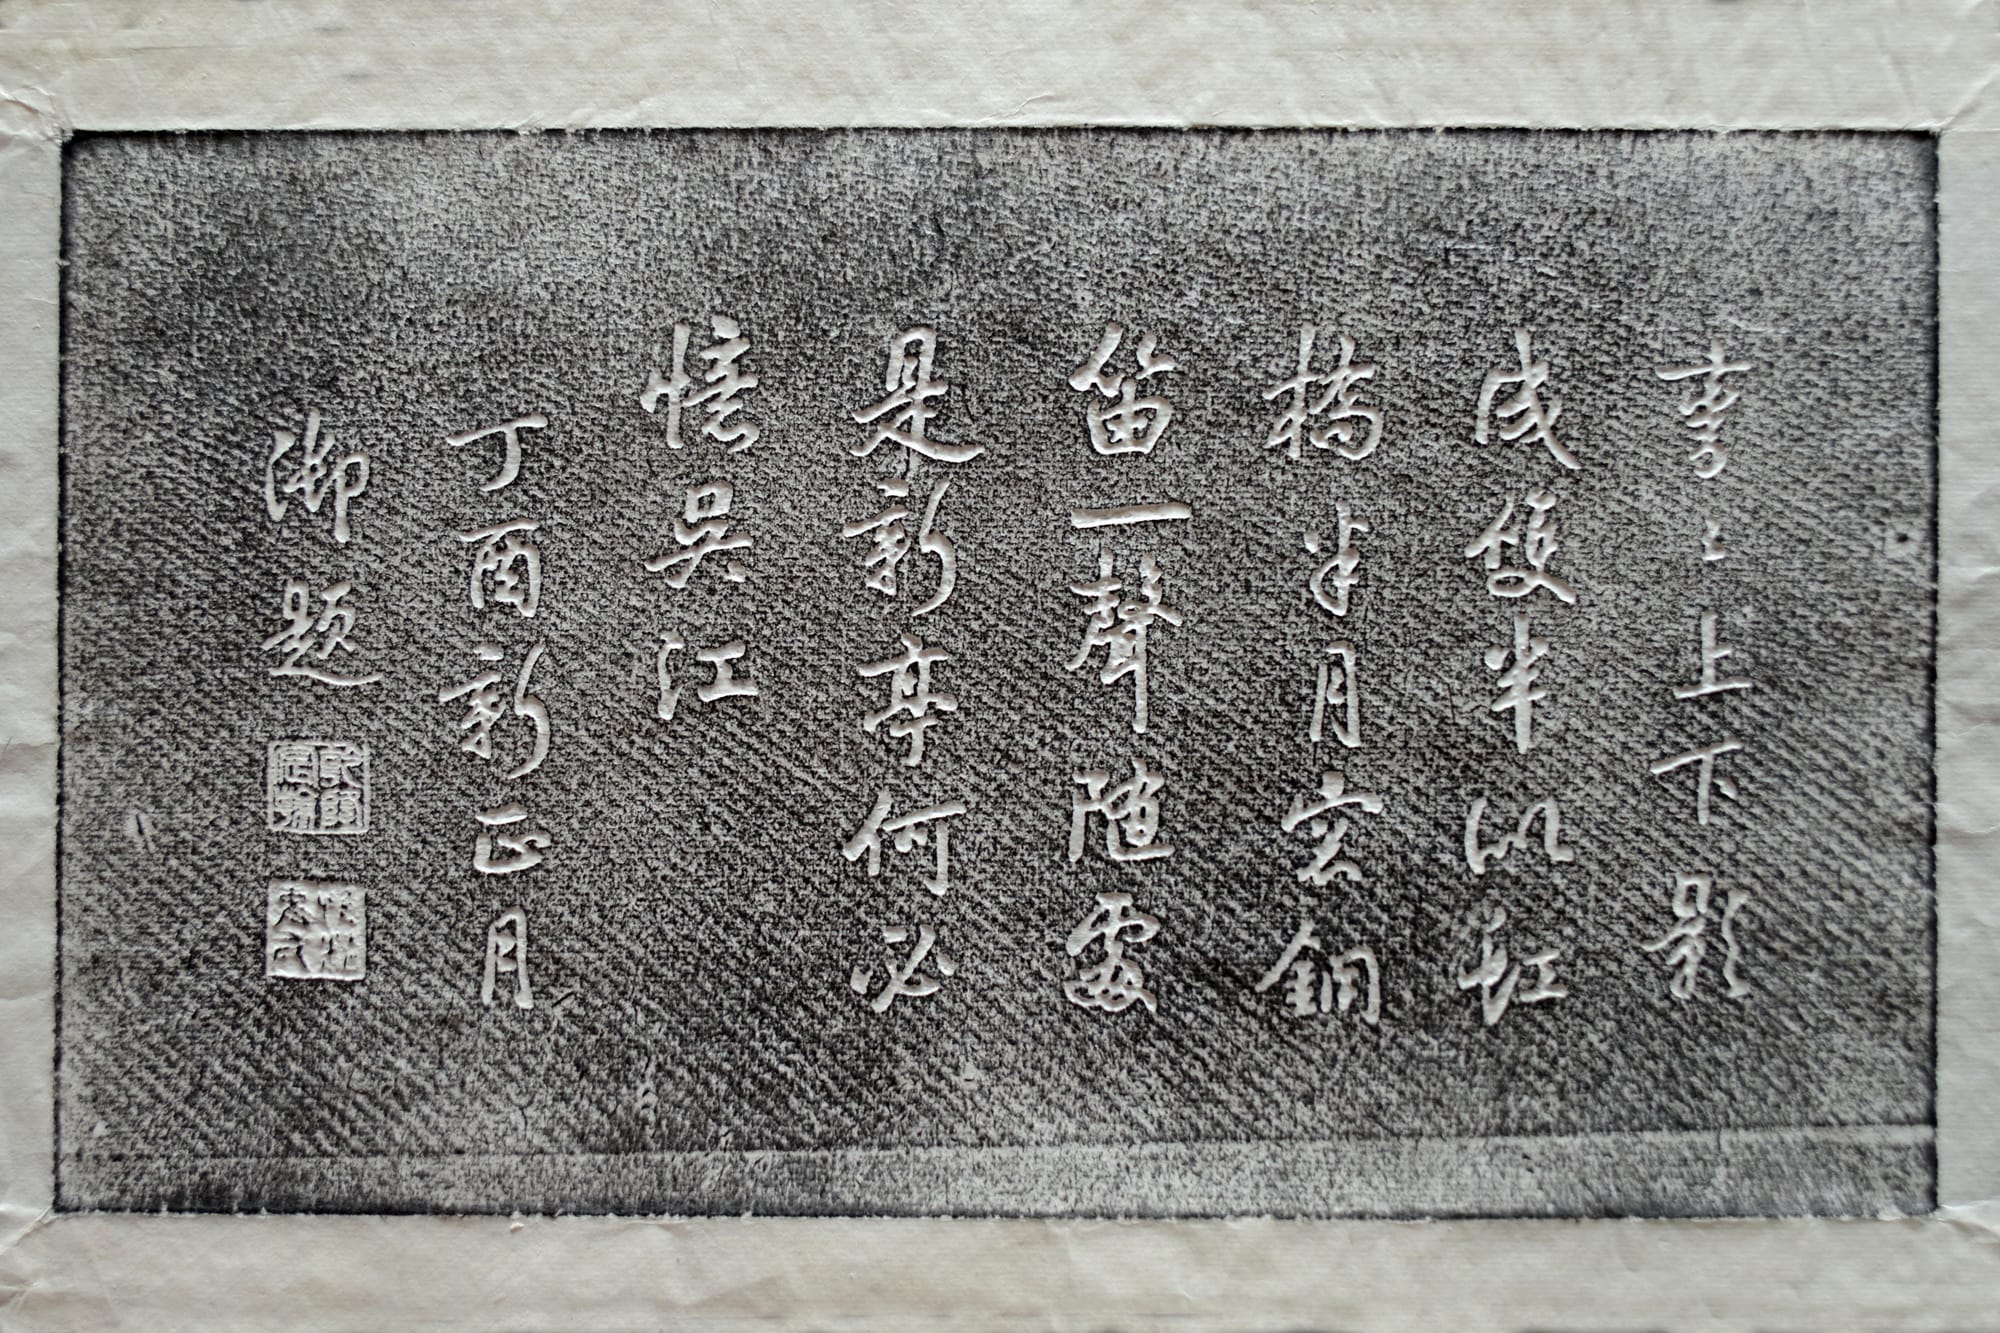 亭〻上下影
成雙半似虹
橋半月窓銅
笛一聲隨處
是新亭何必
憶吳江
丁酉新正月
御題
乾隆宸翰